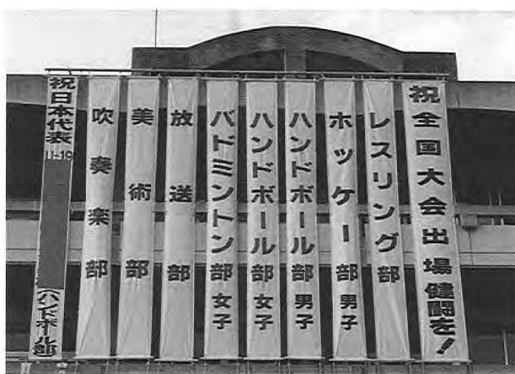 祝全国大会出場健闘を!
レスリング部
ホッケー部男子
ハンドボール部男子
ハンドボール部女子
バドミントン部女子
放送部
美術部
吹奏楽部
祝日本代表
U-19
(ハンドボール部